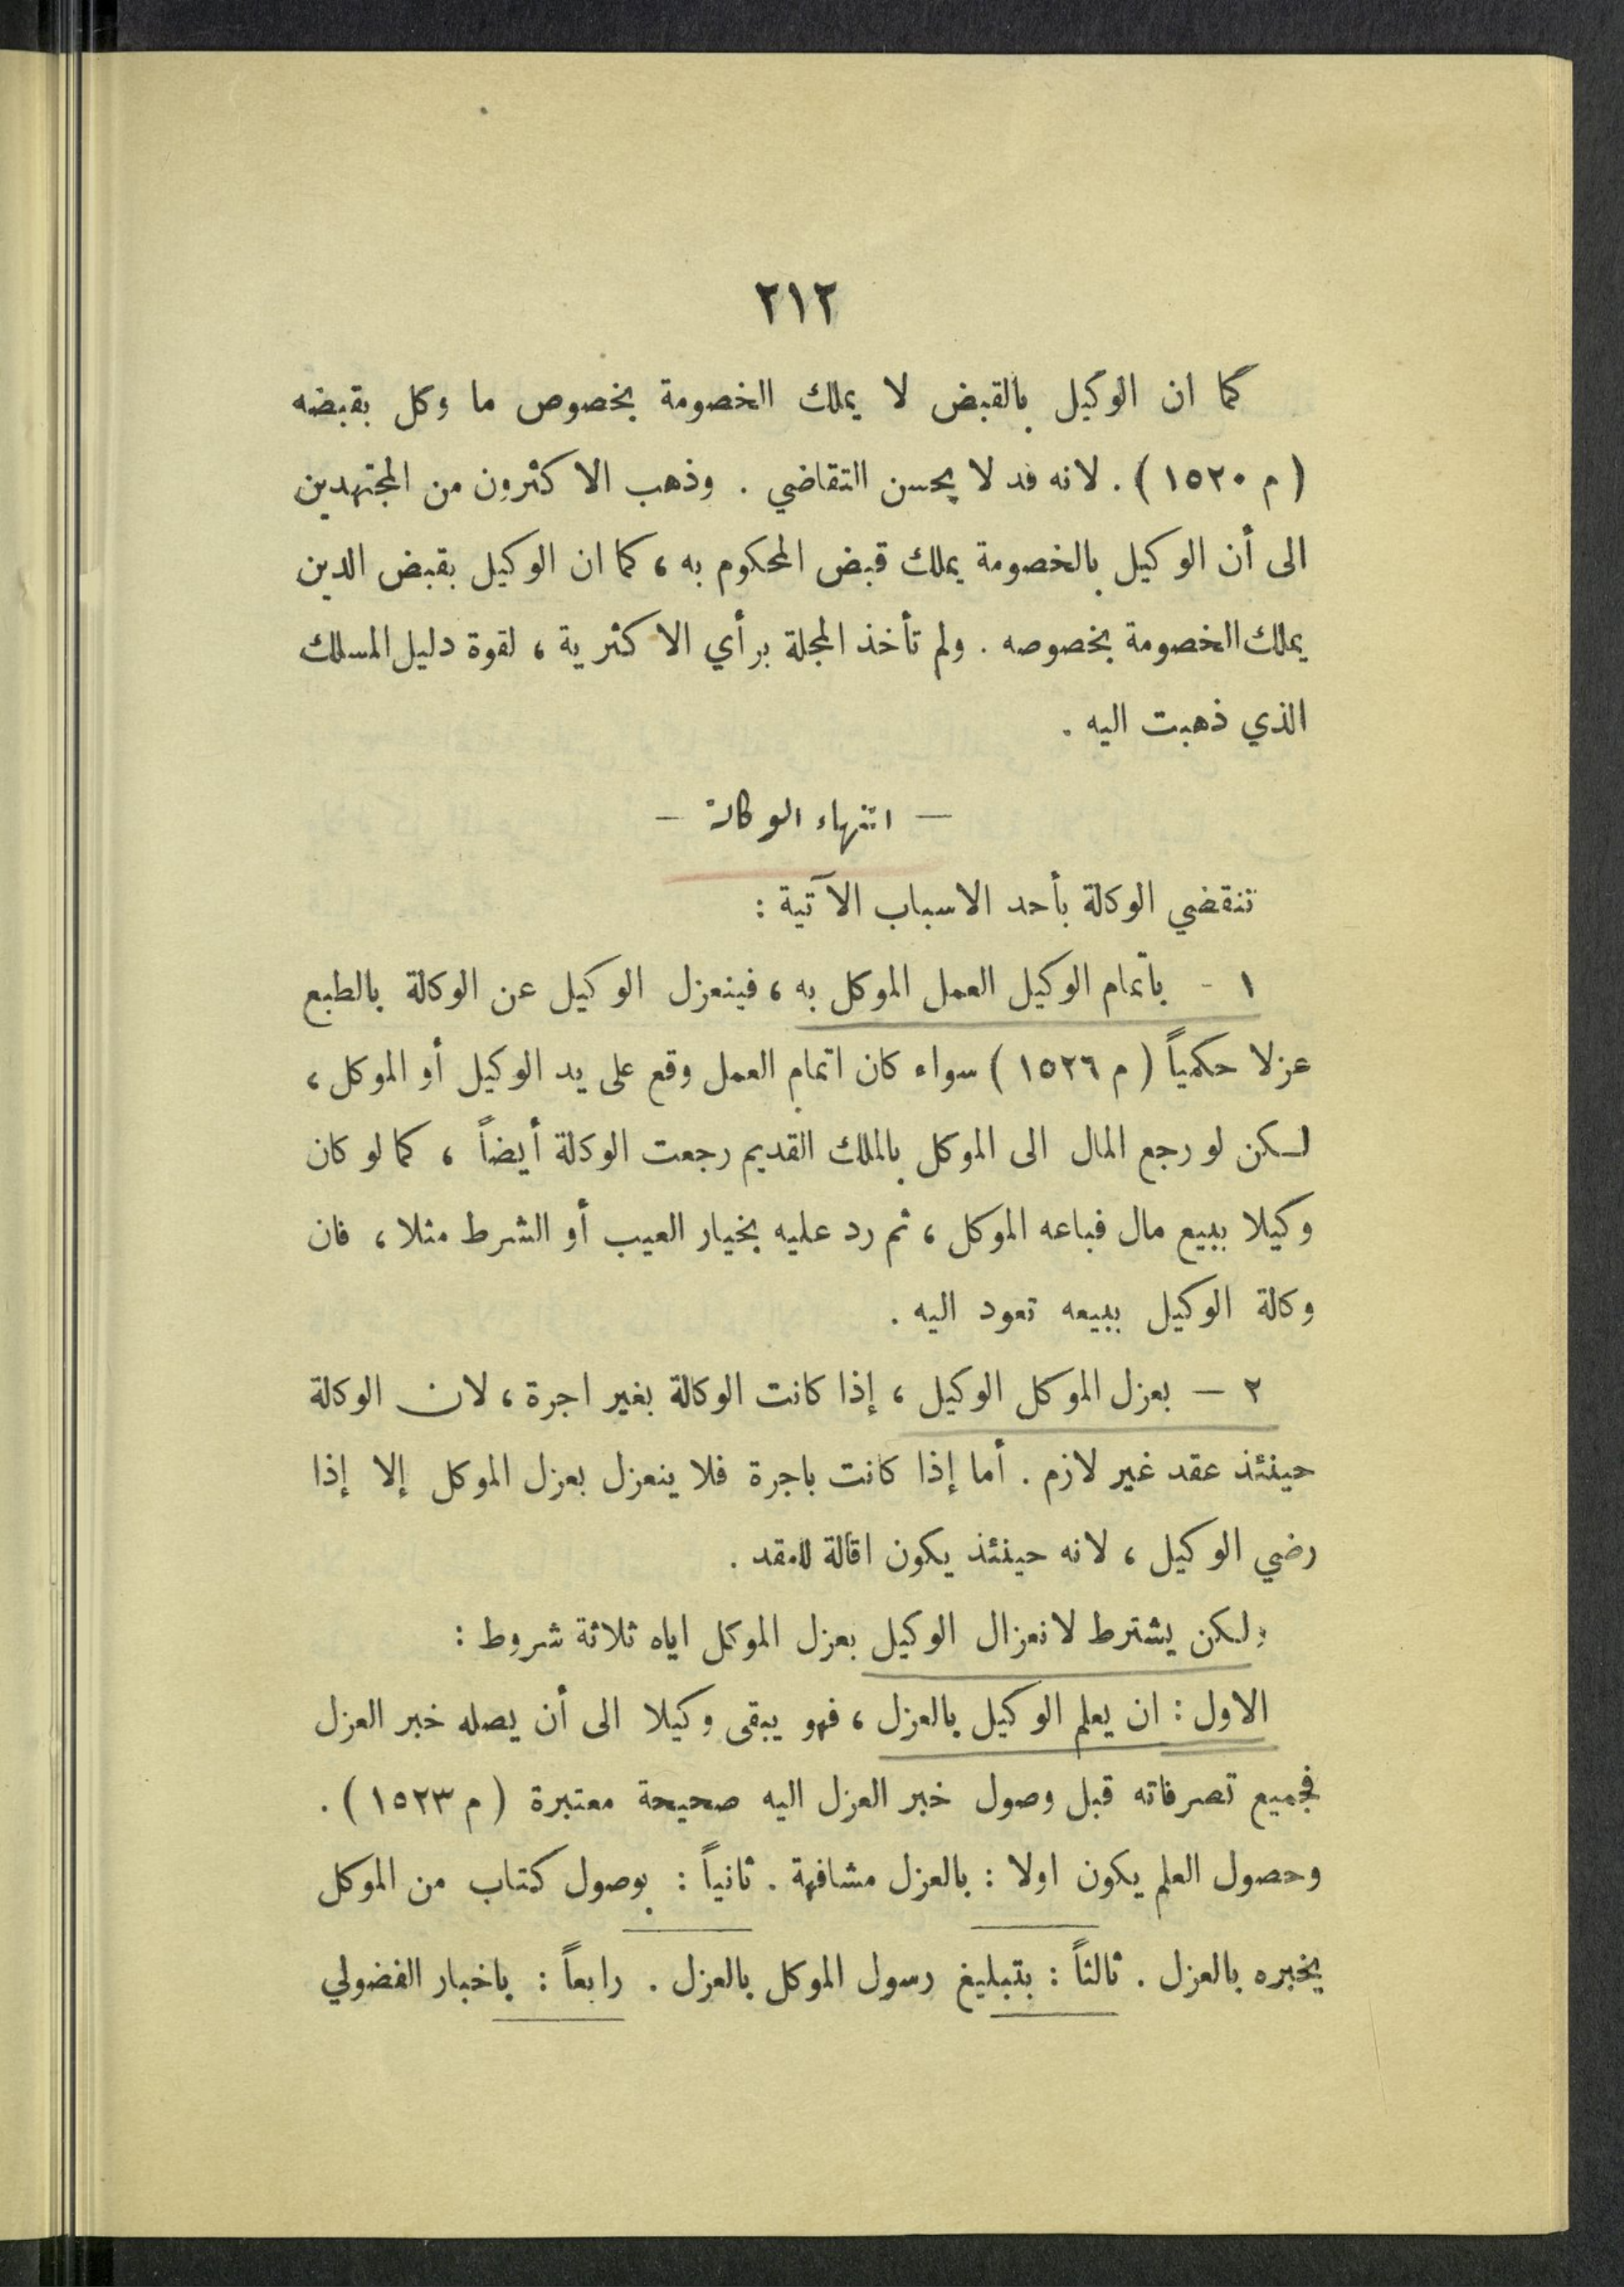 ٢١٢
كما ان الوكيل بالقبض لا يملك الخصومة بخصوص ما وكل بقبضه
( م ١٥٢٠ ) . لانه قد لا يحسن التقاضي . وذهب الاكثرون من المجتهدين
الى أن الوكيل بالخصومة يملك قبض المحكوم به ، كما ان الوكيل بقبض الدين
يملك الخصومة بخصوصه . ولم تأخذ المجلة برأي الاكثرية ، لقوة دليل المسلك
الذي ذهبت اليه .
— انتهاء الوكالة —
تنقضي الوكالة بأحد الاسباب الآتية :
١ - باتمام الوكيل العمل الموكل به ، فينعزل الوكيل عن الوكالة بالطبع
عزلا حكمياً ( م ١٥٢٦ ) سواء كان اتمام العمل وقع على يد الوكيل أو الموكل ،
لكن لو رجع المال الى الموكل بالملك القديم رجعت الوكالة أيضاً ، كما لو كان
وكيلا ببيع مال فباعه الموكل ، ثم رد عليه بخيار العيب أو الشرط مثلا ، فان
وكالة الوكيل ببيعه تعود اليه .
٢ — بعزل الموكل الوكيل ، إذا كانت الوكالة بغير اجرة ، لان الوكالة
حينئذ عقد غير لازم . أما إذا كانت باجرة فلا ينعزل بعزل الموكل إلا إذا
رضي الوكيل ، لانه حينئذ يكون اقالة للعقد .
ولكن يشترط لانعزال الوكيل بعزل الموكل اياه ثلاثة شروط :
الاول : ان يعلم الوكيل بالعزل ، فهو يبقى وكيلا الى أن يصله خبر العزل
فجميع تصرفاته قبل وصول خبر العزل اليه صحيحة معتبرة ( م ١٥٢٣ ) .
وحصول العلم يكون اولا : بالعزل مشافهة . ثانياً : بوصول كتاب من الموكل
يخبره بالعزل . ثالثاً : بتبليغ رسول الموكل بالعزل . رابعاً : باخبار الفضولي